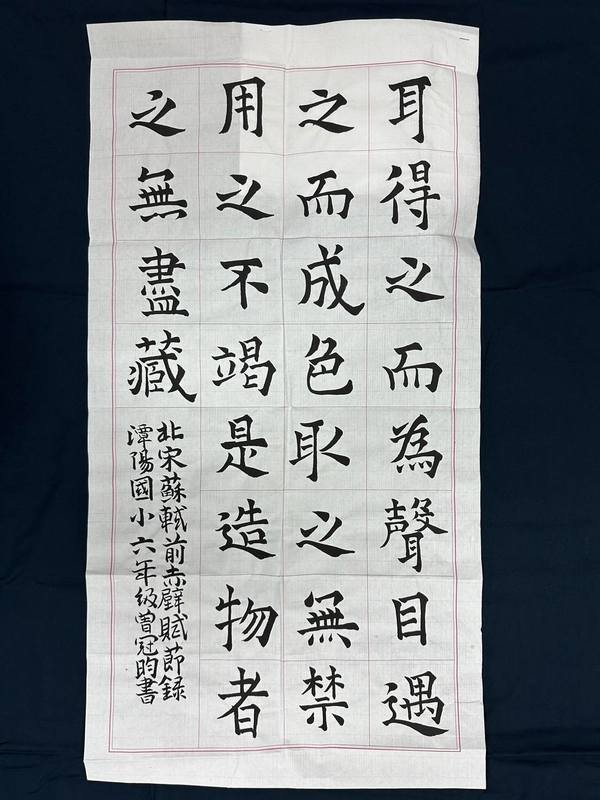 耳得之而為聲目遇
之而成色取之無禁
用之不竭是造物者
之無盡藏
北宋蘇軾前赤壁賦節録
潭陽國小六年級曾冠昀書